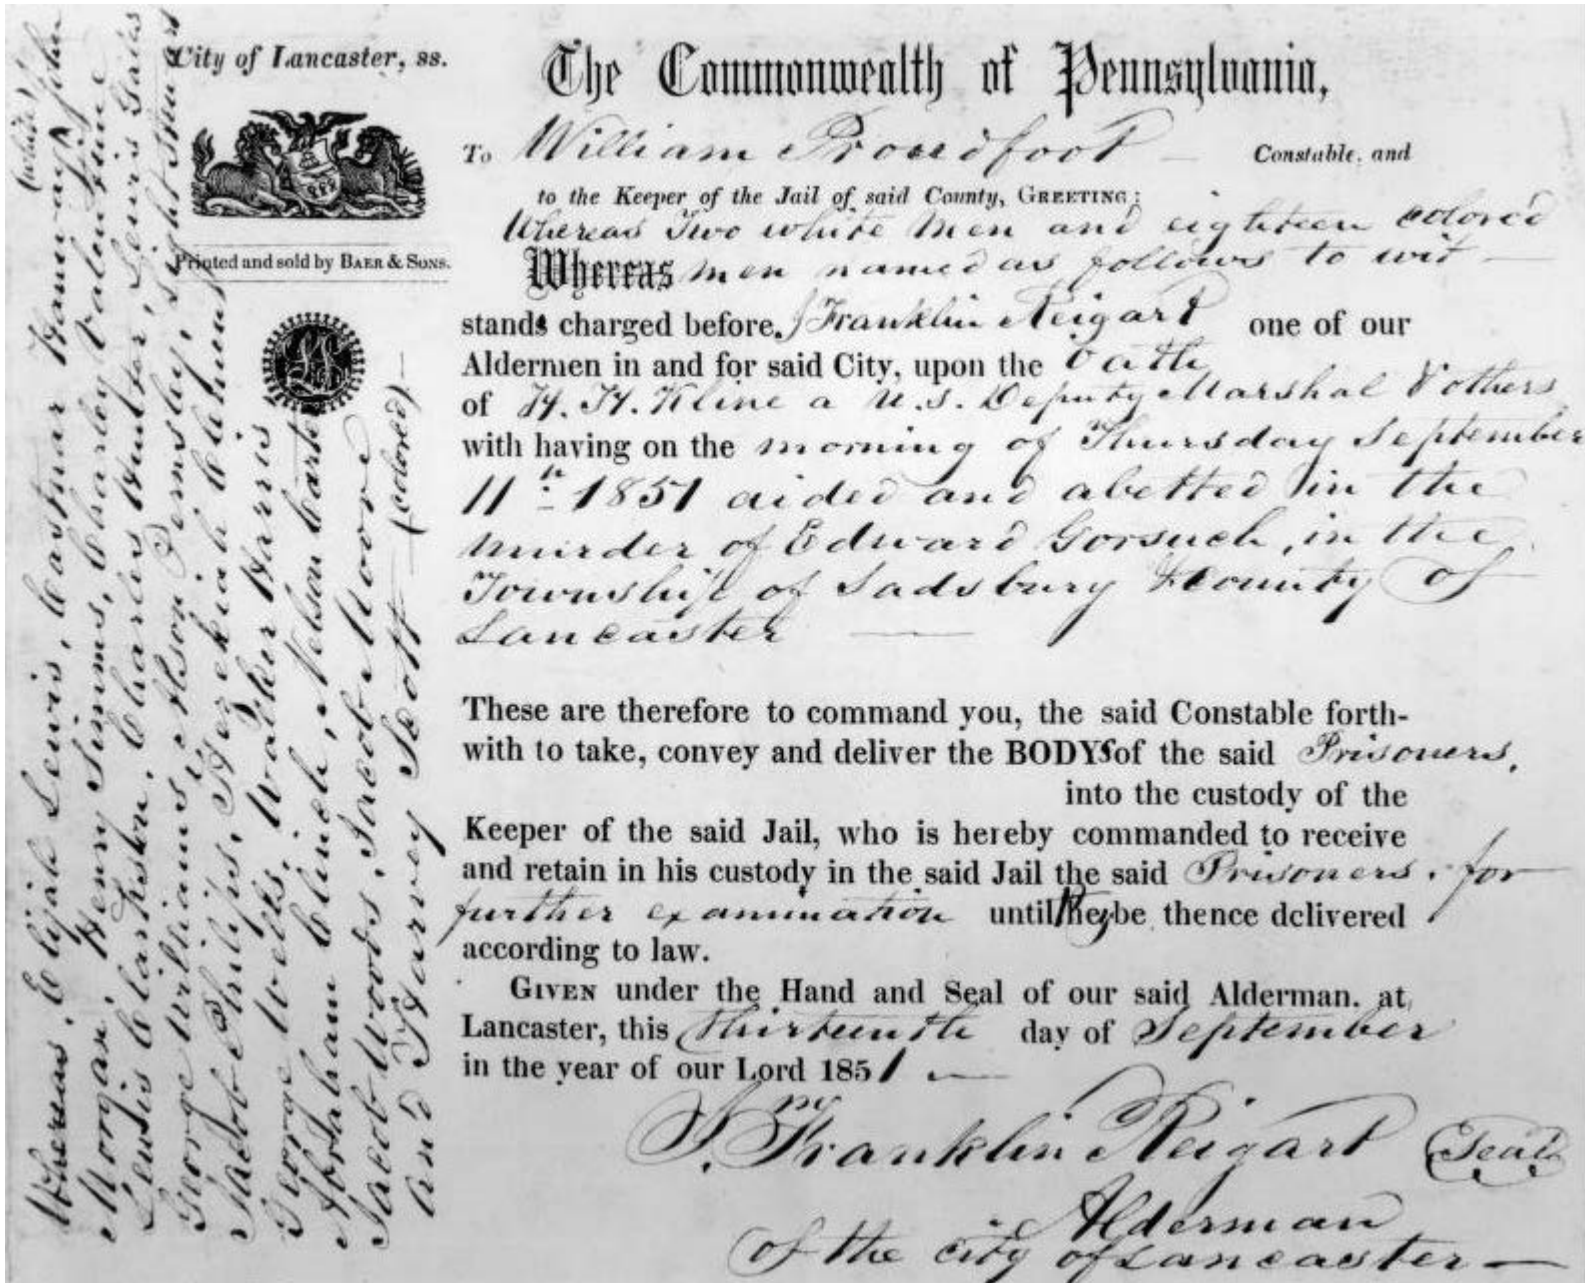 City of Lancaster, ss.
Printed and sold by BAER & SONS.
The Commonwealth of Pennsylvania,
To William Proudfoot Constable, and
to the Keeper of the Jail of said County, GREETING:
Whereas Two white men and eighteen colored
Whereas men named as follows to wit
stands charged before, J Franklin Reigart one of our
Aldermen in and for said City, upon the Oath
of H. H. Kline a U.S. Deputy Marshal & others
with having on the morning of Thursday September
11th 1851 aided and abetted in the
murder of Edward Gorsuch, in the
Township of Sadsbury & County of
Lancaster
These are therefore to command you, the said Constable forth-
with to take, convey and deliver the BODYS of the said Prisoners,
into the custody of the
Keeper of the said Jail, who is hereby commanded to receive
and retain in his custody in the said Jail the said Prisoners, for
further examination until they be thence delivered
according to law.
GIVEN under the Hand and Seal of our said Alderman. at
Lancaster, this thirteenth day of September
in the year of our Lord 1851
J. Franklin Reigart Seal
Alderman
of the city of Lancaster
Whereas, Elijah Lewis, Castnar Hanway (white) John
Morgan, Henny Simms, Charley Valentine
Lewis Clarkston, Charles Hunter, Lewis Gales
George Williams, Alson Pernsley,
Jacob Philips, Hezekiah
George Wells, Walker Harris
Abraham Clinch, Nelson Carter
Jacob Woods, Jacob Moore
and Harvey Scott (colored).